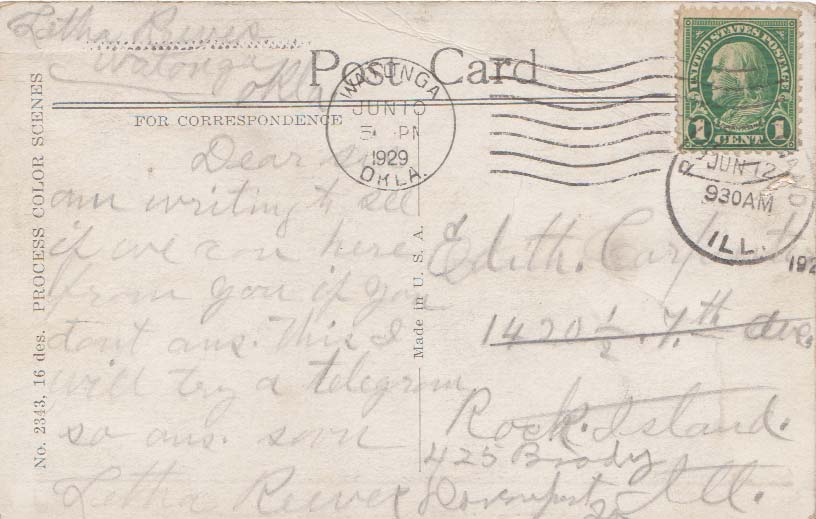 Letha Reeves
Watonga
Okla
Post Card
FOR CORRESPONDENCE
WATONGA
JUN 10
5 PM
1929
OKLA.
UNITED STATES POSTAGE
FRANKLIN
1 CENT 1
JUN 12
930AM
ILL.
192
No. 2343, 16 des. PROCESS COLOR SCENES
Made in U. S. A.
Dear sis
am writing to see
if we can here
from you if you
dont ans. This I
will try a telegram
so ans. soon
Letha Reeves
Edith. Carpent
1420 1/2 . 7.th ave.
Rock. Island.
425 Brady
Davenport
Ill.